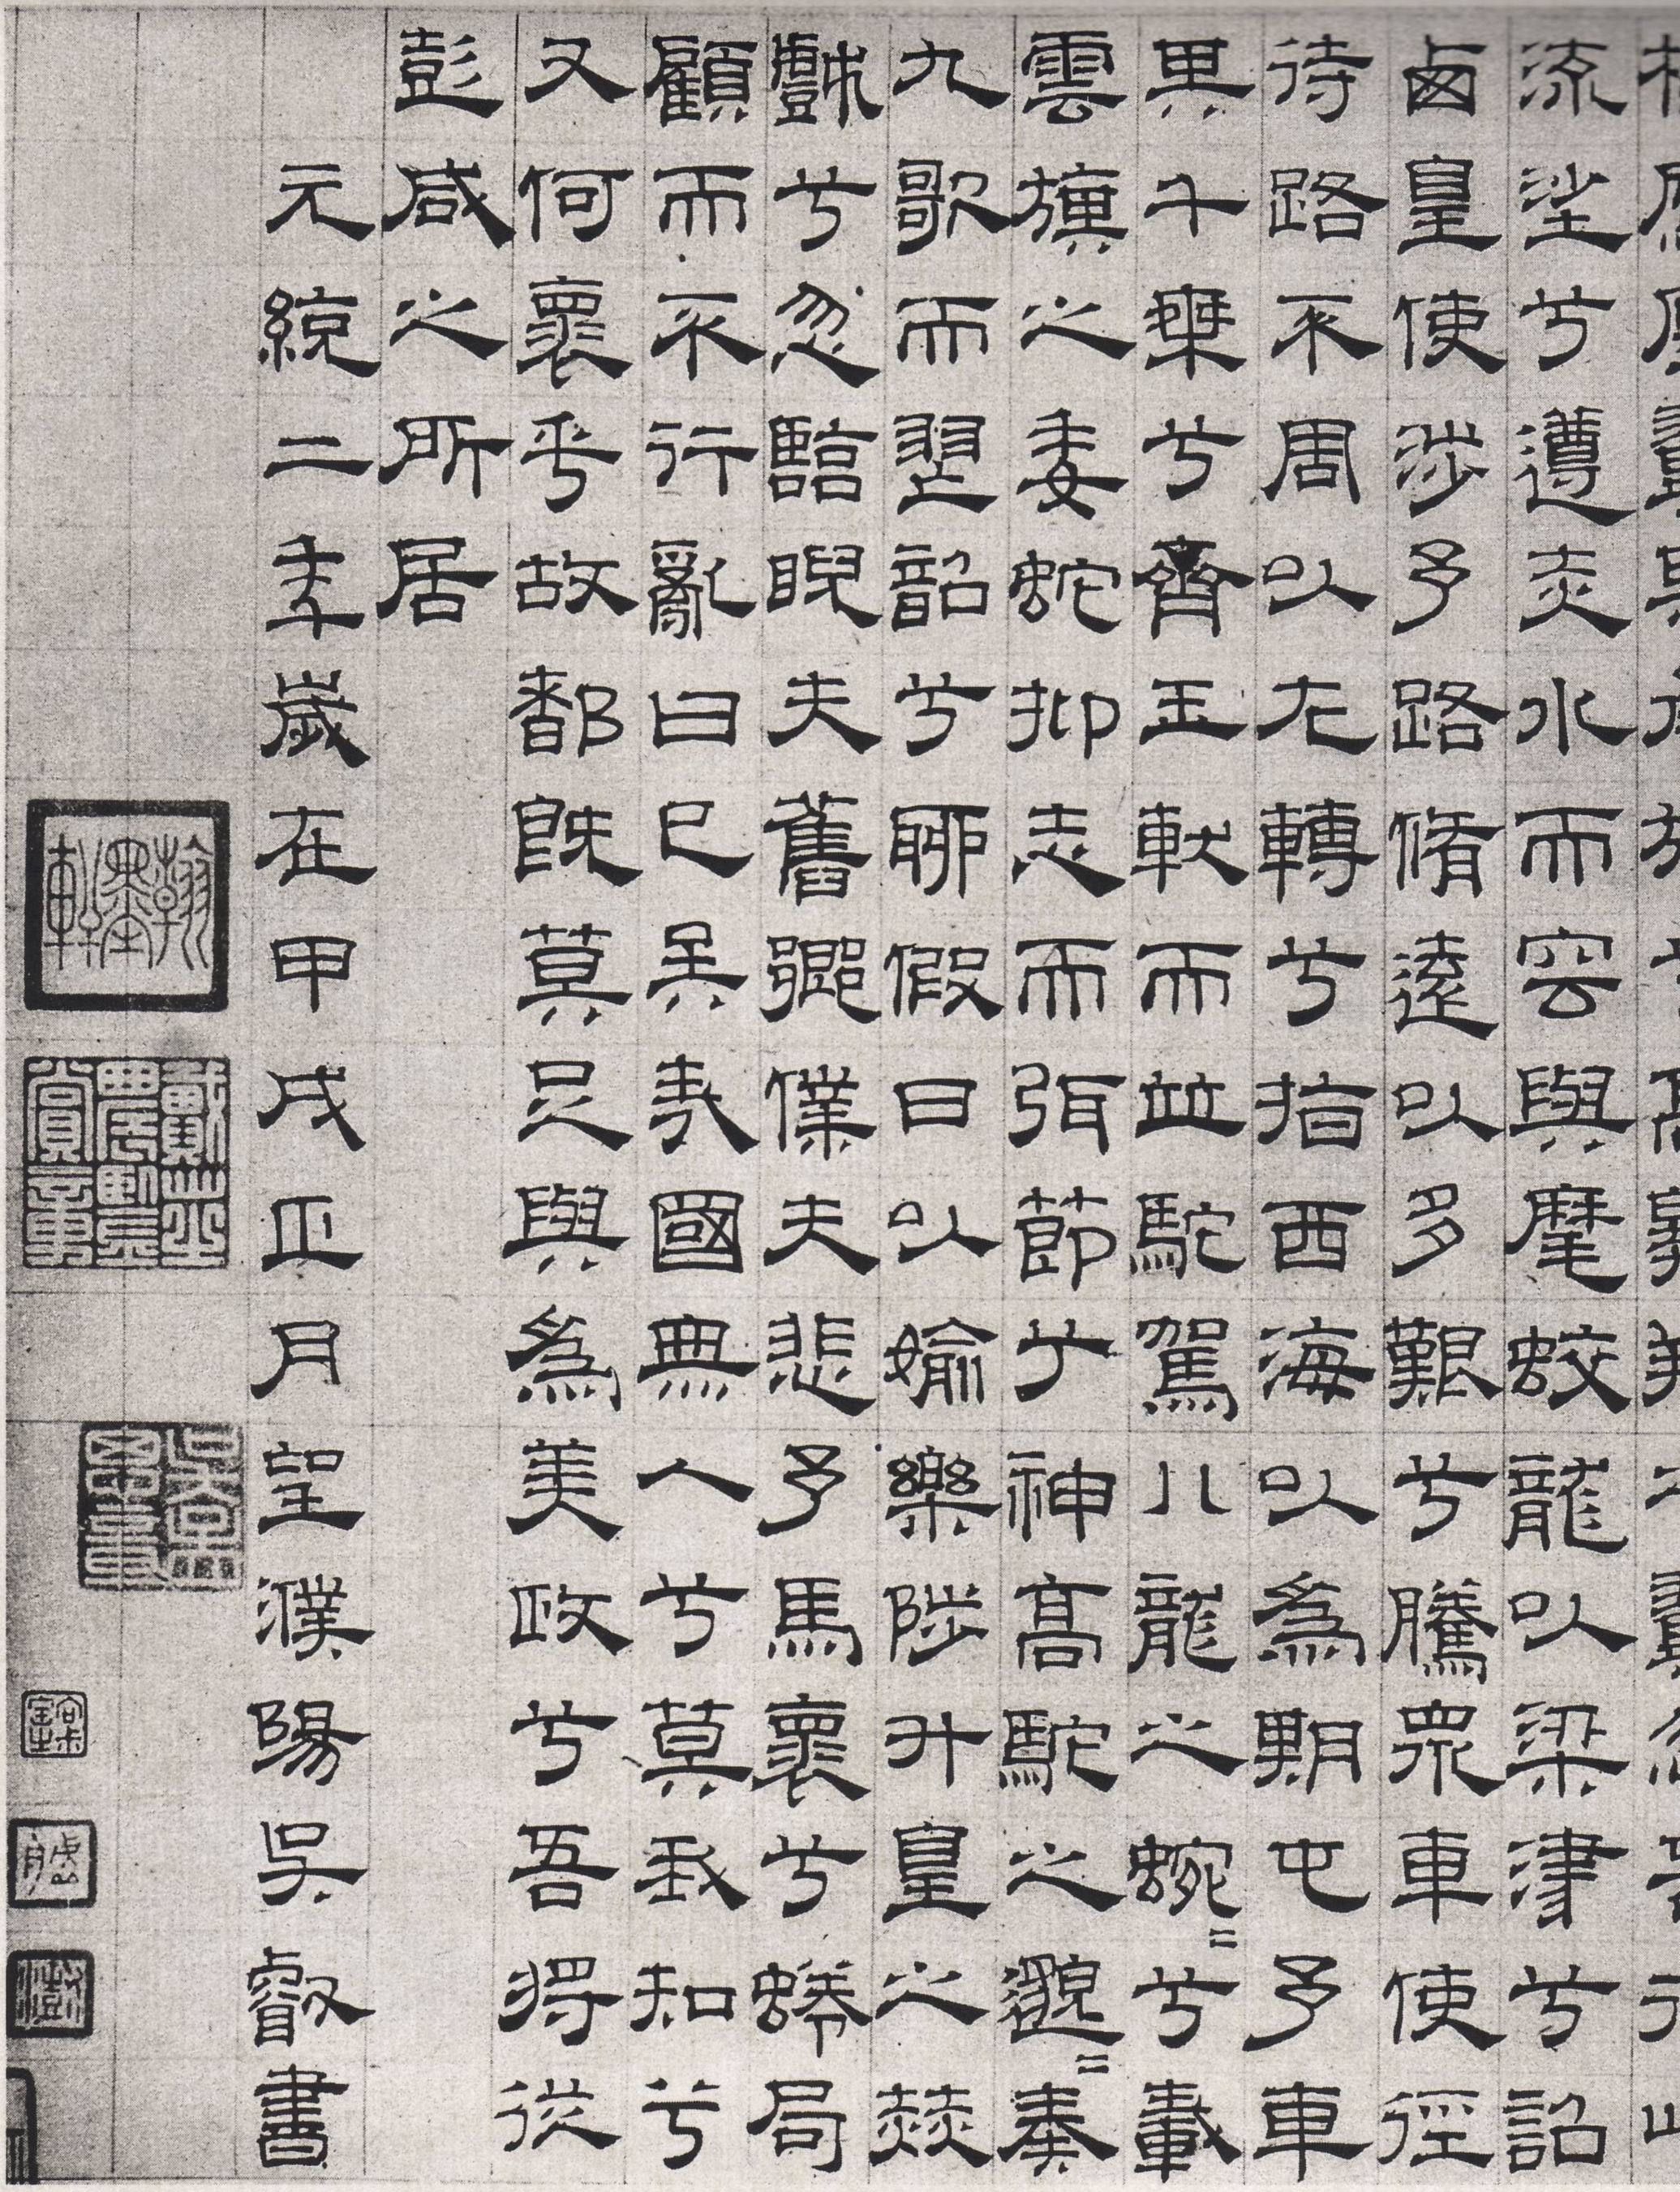 流沙兮遵赤水而容與麾蛟龍以梁津兮詔
西皇使涉予路脩遠以多艱兮騰眾車使徑
待路不周以左轉兮指西海以爲期屯予車
其千乘兮齊玉軑而並駝駕八龍之蜿=兮載
雲旗之委蛇抑志而弭節兮神高駝之邈=奏
九歌而舞韶兮聊假日以媮樂陟升皇之赫
戲兮忽臨睨夫舊鄉僕夫悲予馬懷兮蜷局
顧而不行亂曰已矣哉國無人兮莫我知兮
又何懷乎故都既莫足與爲美政兮吾將從
彭咸之所居
元統二年歲在甲戌正月望濮陽吳叡書
翰墨軒